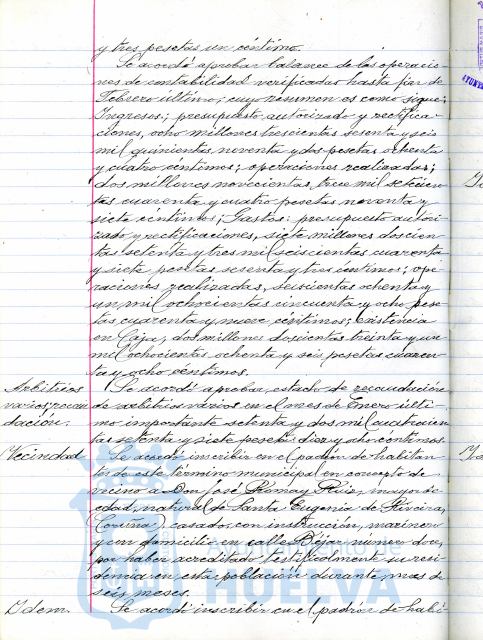 y tres pesetas un céntimo.
Se acordó aprobar balance de las operacio-
nes de contabilidad verificadas hasta fin de
Febrero último; cuyo resumen es como sigue:
Ingresos; presupuesto autorizado y rectifica-
ciones, ocho millones trescientas sesenta y seis
mil quinientas noventa y dos pesetas ochenta
y cuatro céntimos; operaciones realizadas;
dos millones novecientas trece mil setecien-
tas cuarenta y cuatro pesetas noventa y
siete céntimos; Gastos: presupuesto autori-
zado y rectificaciones, siete millones doscien-
tas setenta y tres mil seiscientas cuarenta
y siete pesetas sesenta y tres céntimos; ope-
raciones realizadas, seiscientas ochenta y
un mil ochocientas cincuenta y ocho pese-
tas cuarenta y nueve céntimos; existencia
en Caja, dos millones doscientas treinta y un
mil ochocientas ochenta y seis pesetas cuaren-
ta y ocho céntimos.
Arbitrios Se acordó aprobar, estado de recaudación
varios; recau- de arbitrios varios en el mes de Enero últi-
dación. mo importante setenta y dos mil cuatrocien-
tas setenta y siete pesetas diez y ocho céntimos.
Vecindad Se acordó inscribir en el padrón de habitan-
tes de este término municipal en concepto de
vecino a Don José Romay Ruiz, mayor de
edad, natural de Santa Eugenia de Riveira,
(Coruña), casado, con instrucción, marinero
y con domicilio en calle Béjar número doce,
por haber acreditado testificalmente su resi-
dencia en esta población durante mas de
seis meses.
Idem. Se acordó inscribir en el padrón de habi-
Ayuntamiento de
HUELVA